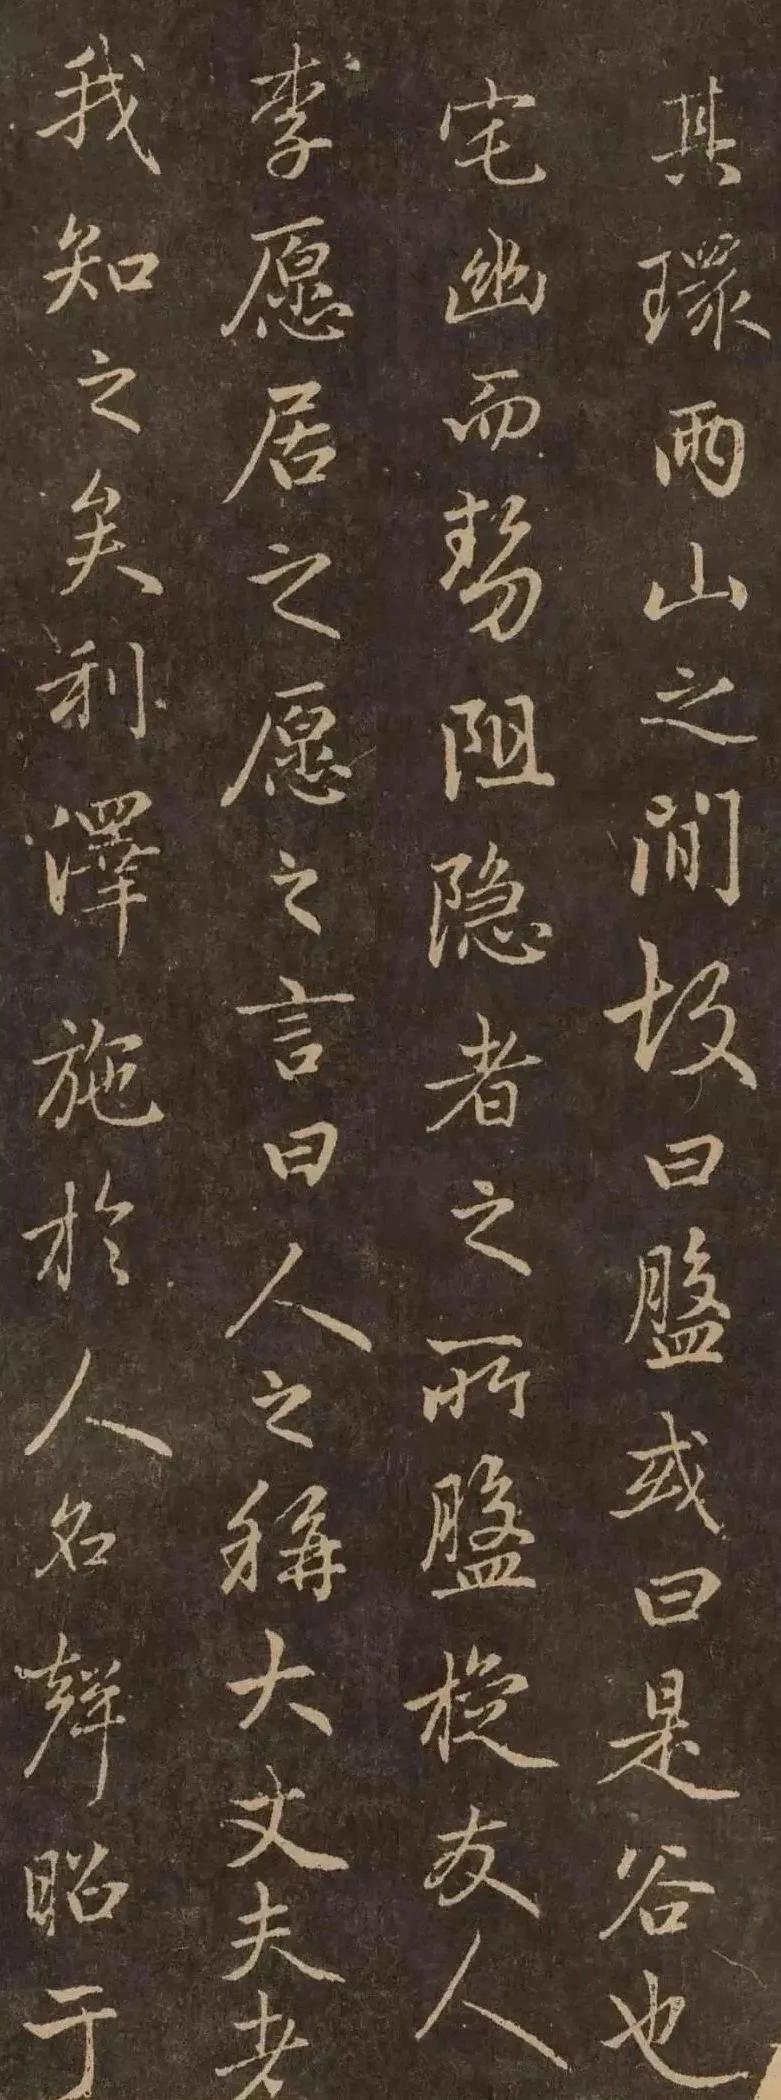 其環兩山之間故曰盤或曰是谷也
宅幽而勢阻隐者之所盤桓友人
李愿居之愿之言曰人之稱大丈夫者
我知之矣利澤施於人名聲昭于